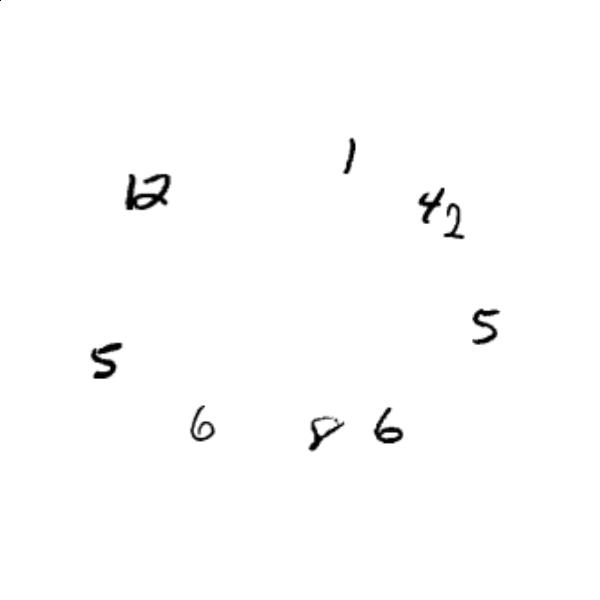 1
12
4
2
5
5
6
8
6